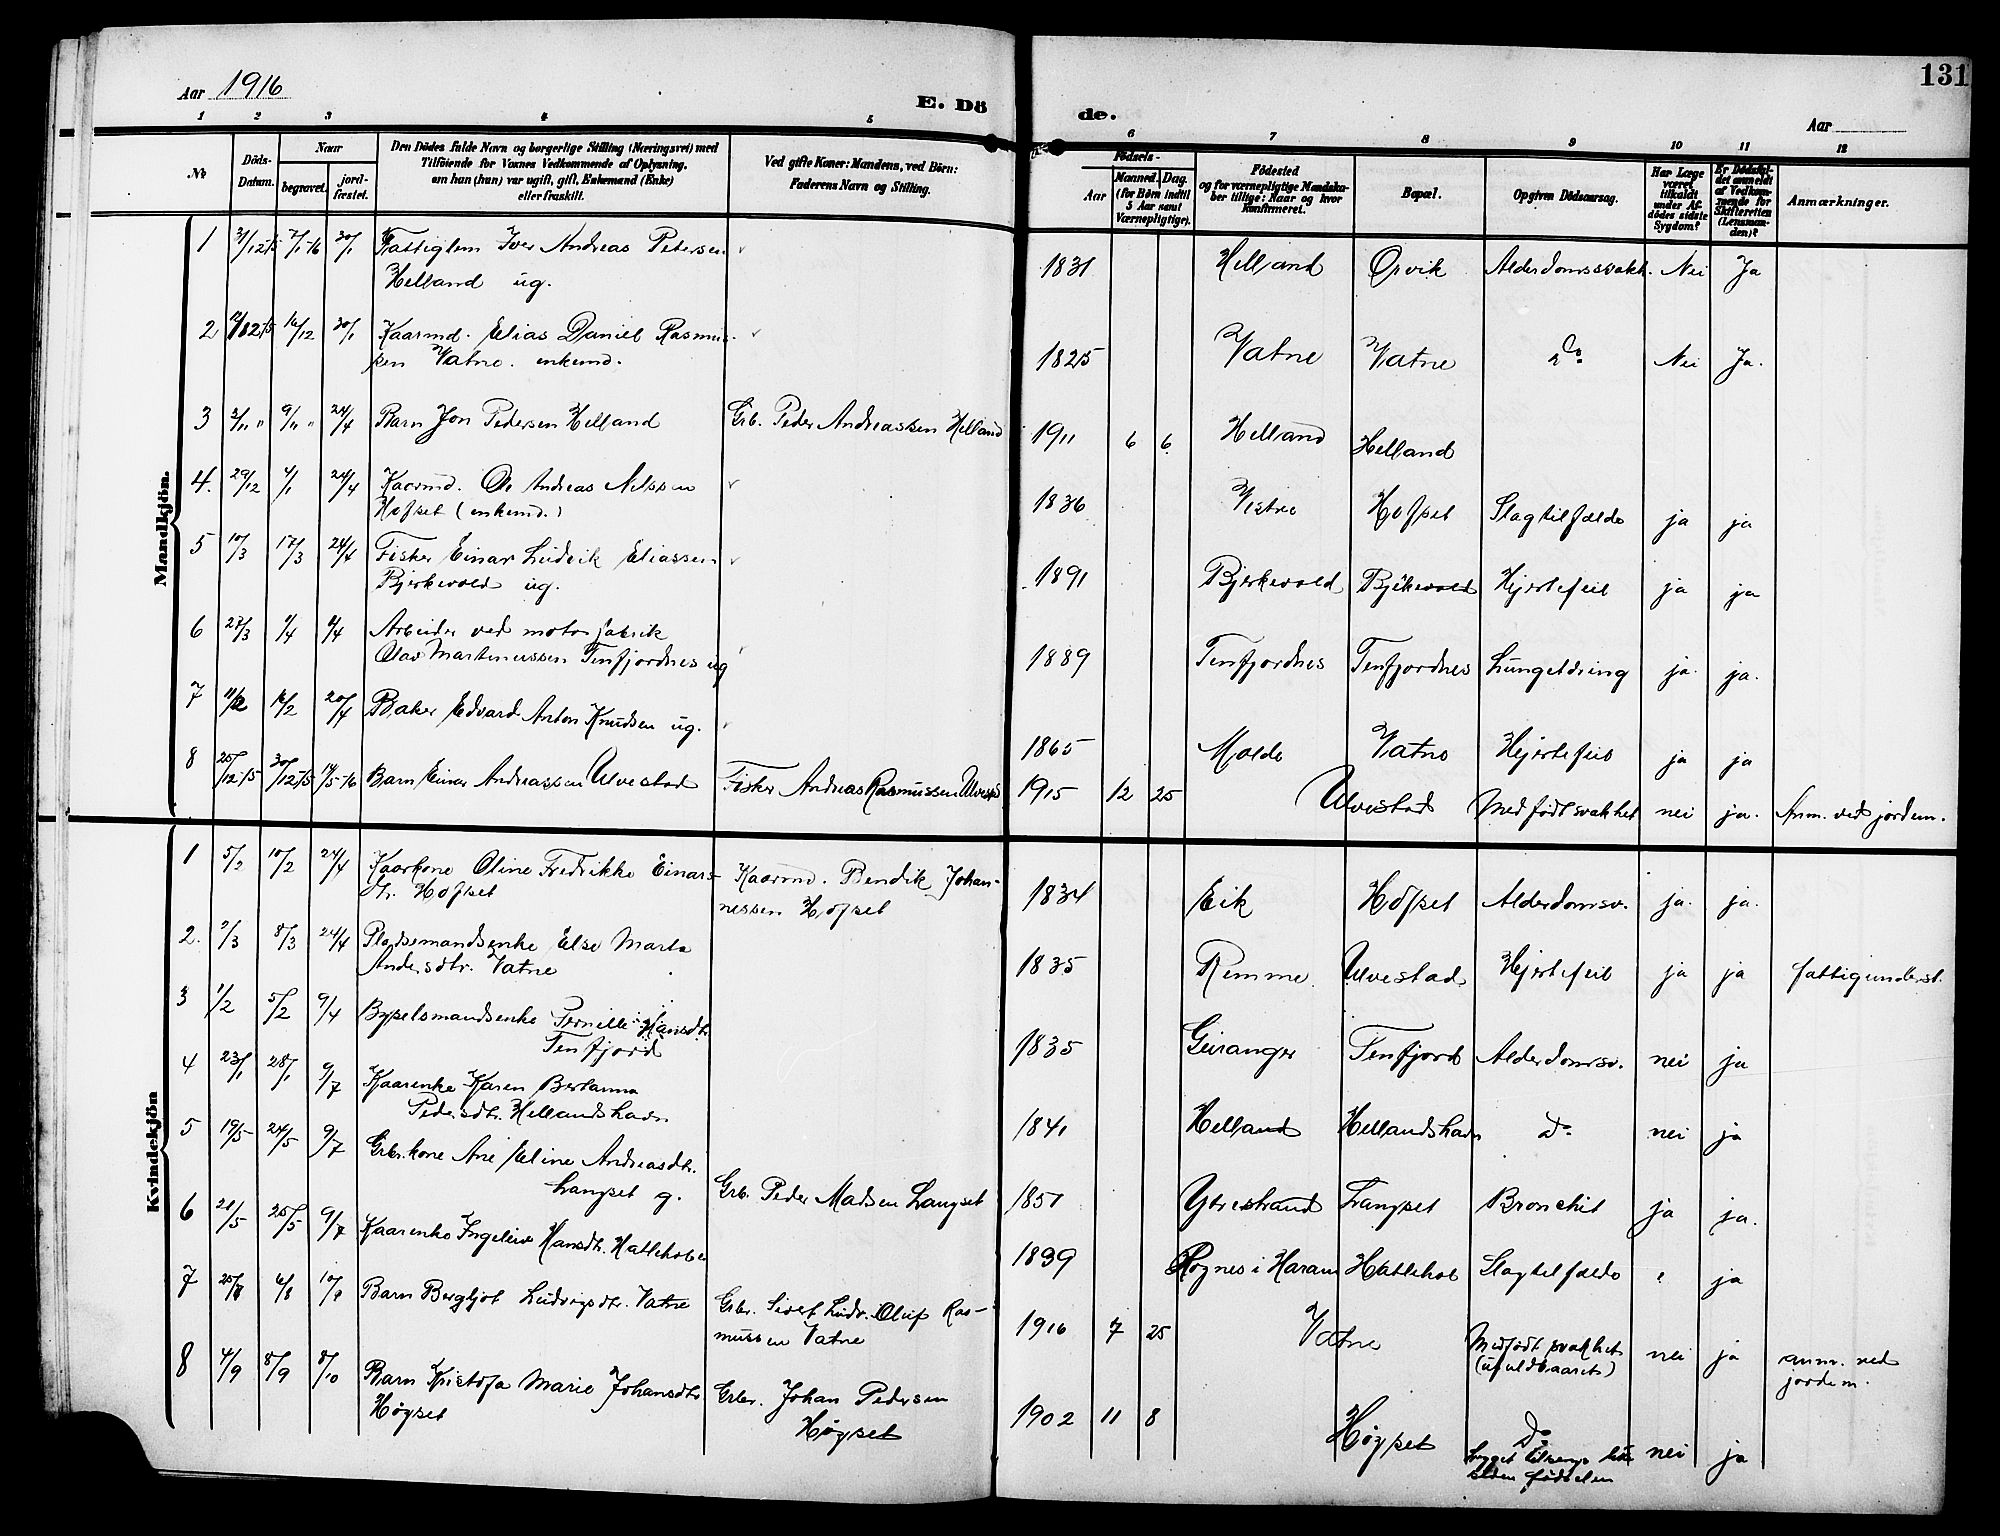 Aar 1916
E. Dö
de.
131
Aar
1 2 3 4 5 6 7 8 9 10 11 12
No
Döds-
Datum.
Naar
begravet.
jord-
fæstet.
Den Dödes fulde Navn og borgerlige Stilling (Næringsvei) med
Tilföiende for Voxnes Vedkommende af Oplysning,
om han (hun) var ugift, gift, Enkemand (Enke)
eller fraskilt.
Ved gifte Koner: Mandens, ved Börn:
Faderens Navn og Stilling.
Födsels-
Aar
Maaned. Dag.
(for Börn indtil
5 Aar samt
Værnepligtige).
Födested
og for værnepligtige Mandska-
ber tillige: Naar og hvor
Konfirmeret.
Bopæl.
Opgiven Dödsaarsag.
Har Læge
været
tilkaldt
under Af-
dödes sidste
Sygdom?
Er Dödsfal-
det anmeldt
af Vedkom-
mende for
Skifteretten
(Lensman-
den)?
Anmærkninger.
Mandkjön.
1 7/1-16 30/1 Fattiglem Iver Andreas Petersen
Helland ug.
1831 Helland Orvik Alderdomssvakh. Nei Ja
2 16/12 30/1 Kaarmd. Elias Daniel Rasmus-
sen Vatne. enkemd.
1825 Vatne Vatne Do Nei Ja.
3 2/11 " 9/11 " 24/4 Barn Jon Pedersen Helland
Grb. Peder Andreassen Helland
1911 6 6 Helland Helland
4. 29/12 4/1 24/4 Kaarmd. Ole Andreas Nilssen
Hofset (enkemd.)
1836 Vatne Hofset Slagtilfælde ja ja
5 10/3 17/3 24/4 Fisker Einar Ludvik Eliassen
Bjerkevold ug.
1891 Bjerkevold Bjerkevold Hjertefeil ja ja
6 27/3 4/4 4/4 Arbeider ved motorfabrik
Olav Martinussen Tenfjordnes ug
1889 Tenfjordnes Tenfjordnes Lungetæring ja. ja.
7 11/2 16/2 20/4 Baker Edvard Anton Knudsen ug.
1865 Molde Vatne Hjertefeil ja ja
8 25/12-15 30/12-15 14/5-16 Barn Einar Andreassen Ulvestad
Fisker Andreas Rasmussen Ulvestad
1915 12 25 Ulvestad Medfödt svakhet nei ja. Anm. ved jordm.
Kvindekjön
1 5/2 10/2 24/4 Kaarkone Oline Fredrikke Einars-
dtr. Hofset
Kaarmd. Bendik Johan-
nessen Hofset
1834 Eik Hofset Alderdomsv. ja. ja.
2. 2/3 8/3 24/4 Pladsemandsenke Else Marta
Andersdtr. Vatne
1835 Remme Ulvestad Hjertefeil ja ja fattigunderst.
3 1/2 5/2 9/4 Bygselsmandsenke Pernille Hansdtr.
Tenfjord
1835 Geiranger Tenfjord Alderdomsv. nei ja
4 23/1 28/1 9/7 Kaarenke Karen Bertanna
Pedersdtr. Hellandshavn
1841 Helland Hellandshavn Do nei ja
5 19/5 24/5 9/7 Grbr.kone Ane Eline Andreasdtr.
Langset g.
Grb. Peder Madsen Langset
1851 Ytrestrand Langset Bronchit ja ja.
6 20/5 25/5 9/7 Kaarenke Ingeline Hansdtr. Hatlehol
1839 Rögnes i Haram Hatlehol Slagtilfælde ja
7 6/8 Barn Bergljot Ludvigsdtr. Vatne
Grbr. Sivert Ludv. Oluf Ras-
mussen Vatne
1916 7 25 Vatne Medfödt svakhet
(ufuldbaaret) nei ja anm. ved
jordm.
8 4/9 8/9 8/10 Barn Kristofa Marie Johansdtr
Høgset
Grbr. Johan Pedersen
Høgset
1902 11 8 Høgset Do
ligget tilsengs
siden födselen nei ja